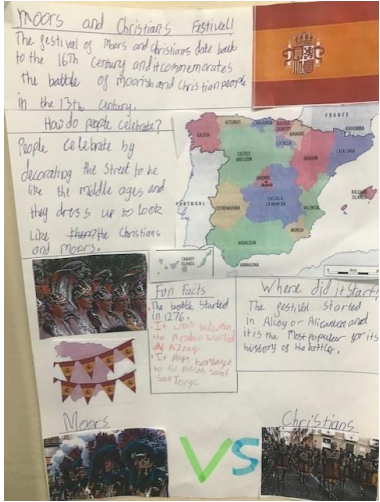 Moors and Christians Festival!
The festival of Moors and Christians date back
to the 16th Century and it commemorates
the battle of moorish and Christian people
in the 13th Century.
How do people celebrate?
People celebrate by
decorating the street to be
like the middle ages and
they dress up to look
like the Christians
and moors.
FRANCE
ANDORRA
GALICIA
ASTURIAS
CANTABRIA
BASQUE COUNTRY
NAVARRA
LA RIOJA
CASTILE AND LEON
ARAGON
CATALONIA
MADRID
PORTUGAL
EXTREMADURA
CASTILLA LA MANCHA
VALENCIA
BALEARIC ISLANDS
ANDALUCIA
MURCIA
GIBRALTAR
CANARY ISLANDS
Fun facts
The battle started
in 1276.
It was between
the Arabic world
Alcoy
It pays homage
to the patron saint
Where did it start?
The festival started
in Alcoy or Alicante and
it is the most popular for its
history of the battles.
Moors
VS
Christians